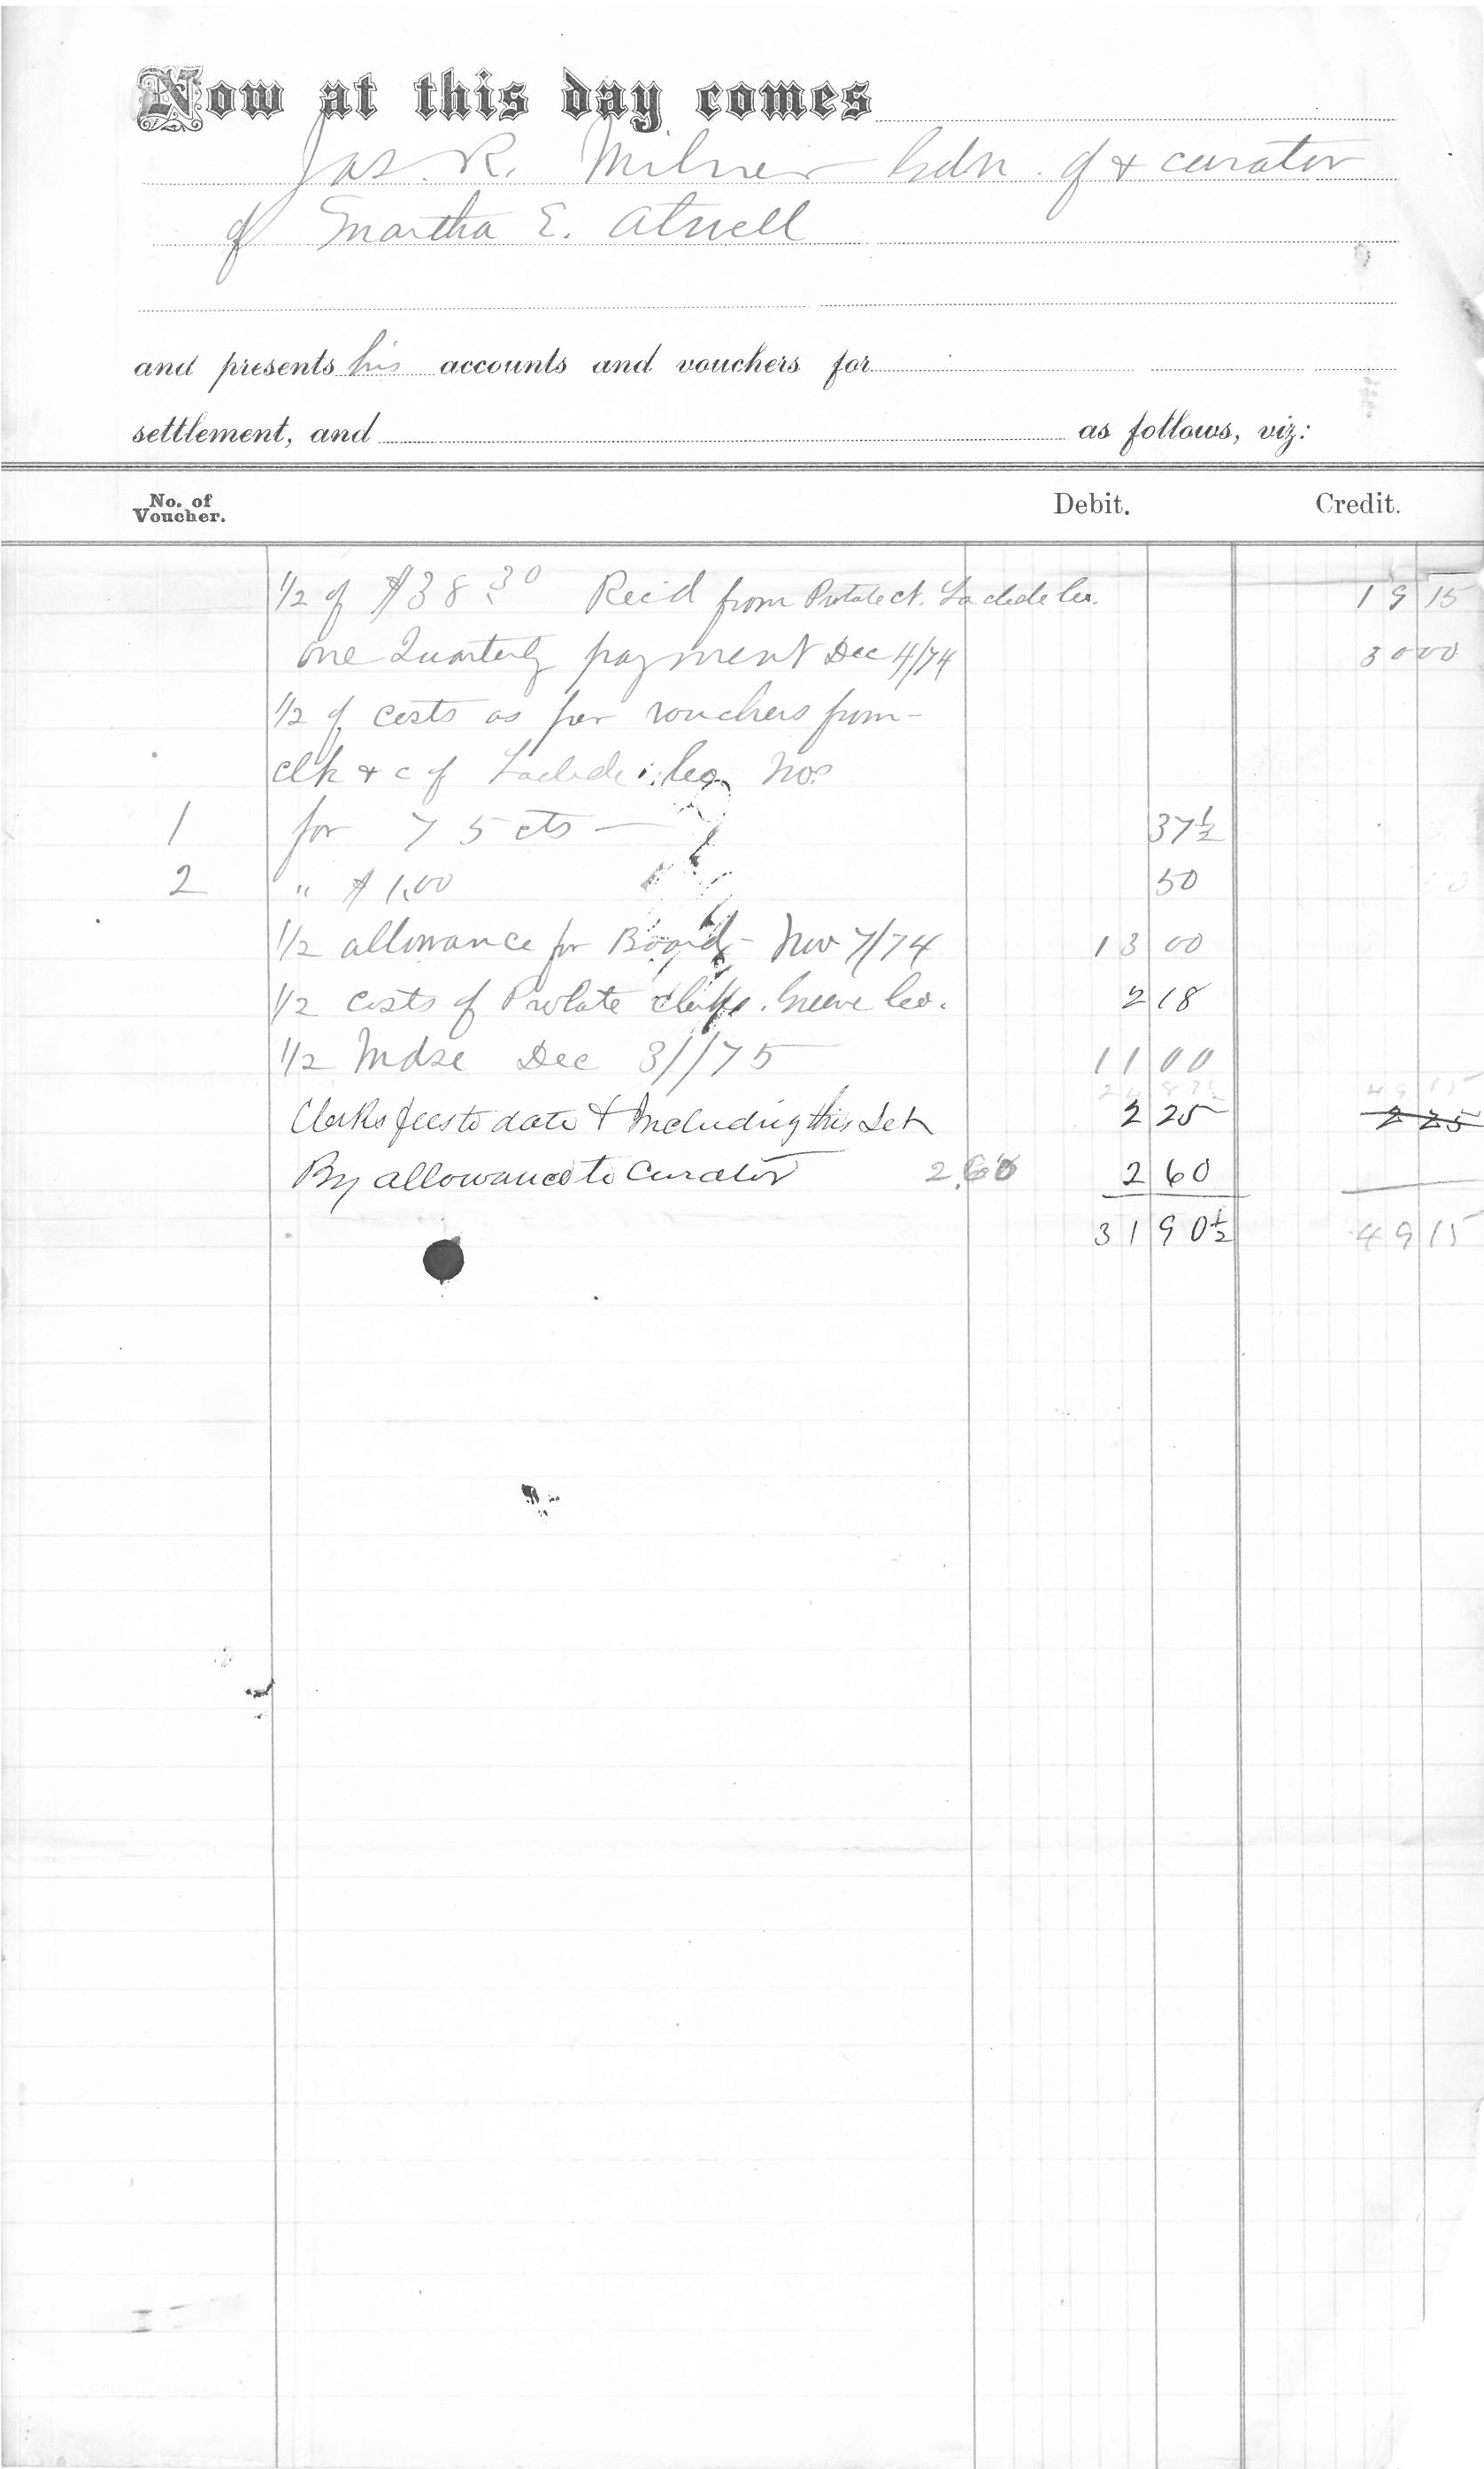 Now at this day comes
Jas. R. Milner Gdn. of & curator
of Martha E. Atwell
and presents his accounts and vouchers for
settlement, and as follows, viz:
No. of Voucher. Debit. Credit.
1/2 of $38.30 Rec'd from Probate ct. Laclede Co. 19 15
one Quarterly payment Dec 4/74 30 00
1/2 of costs as per vouchers from
clk & c of Laclede Co. Nos
1 for 75 cts — 37 1/2
2 " $1.00 50
1/2 allowance for Board - Nov 7/74 13 00
1/2 costs of Probate clerk. Greene Co. 2 18
1/2 Mdse Dec 31/75 11 00
49 15
Clerks fees to date & Including this Set 2 25 2 25
By allowance to Curator 2.60 2 60
31 90 1/2 49 15